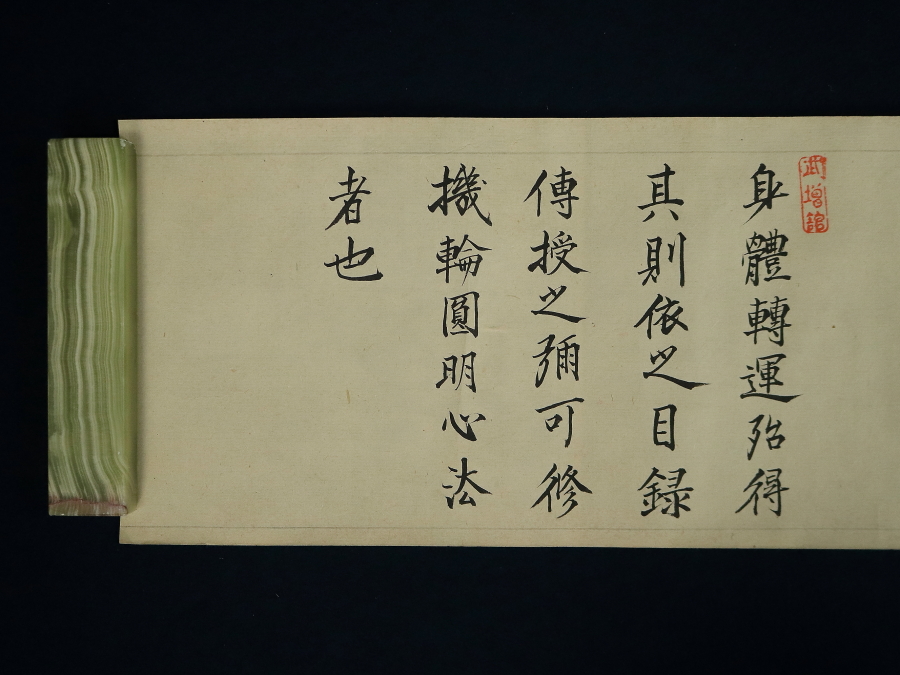 武增館
身體轉運殆得
其則依之目録
傳授之彌可修
機輪圓明心法
者也